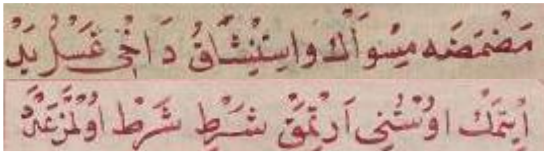 مَضْمَضَه مِسْوَاكْ وَاسْتِنْشَاقْ دَاخِی غَسْلُ يَدْ
اِيتْمَكْ اوُسْتُنِی آرْتِمَقْ شَرْطِ شَرْط اوُلْمَزْ